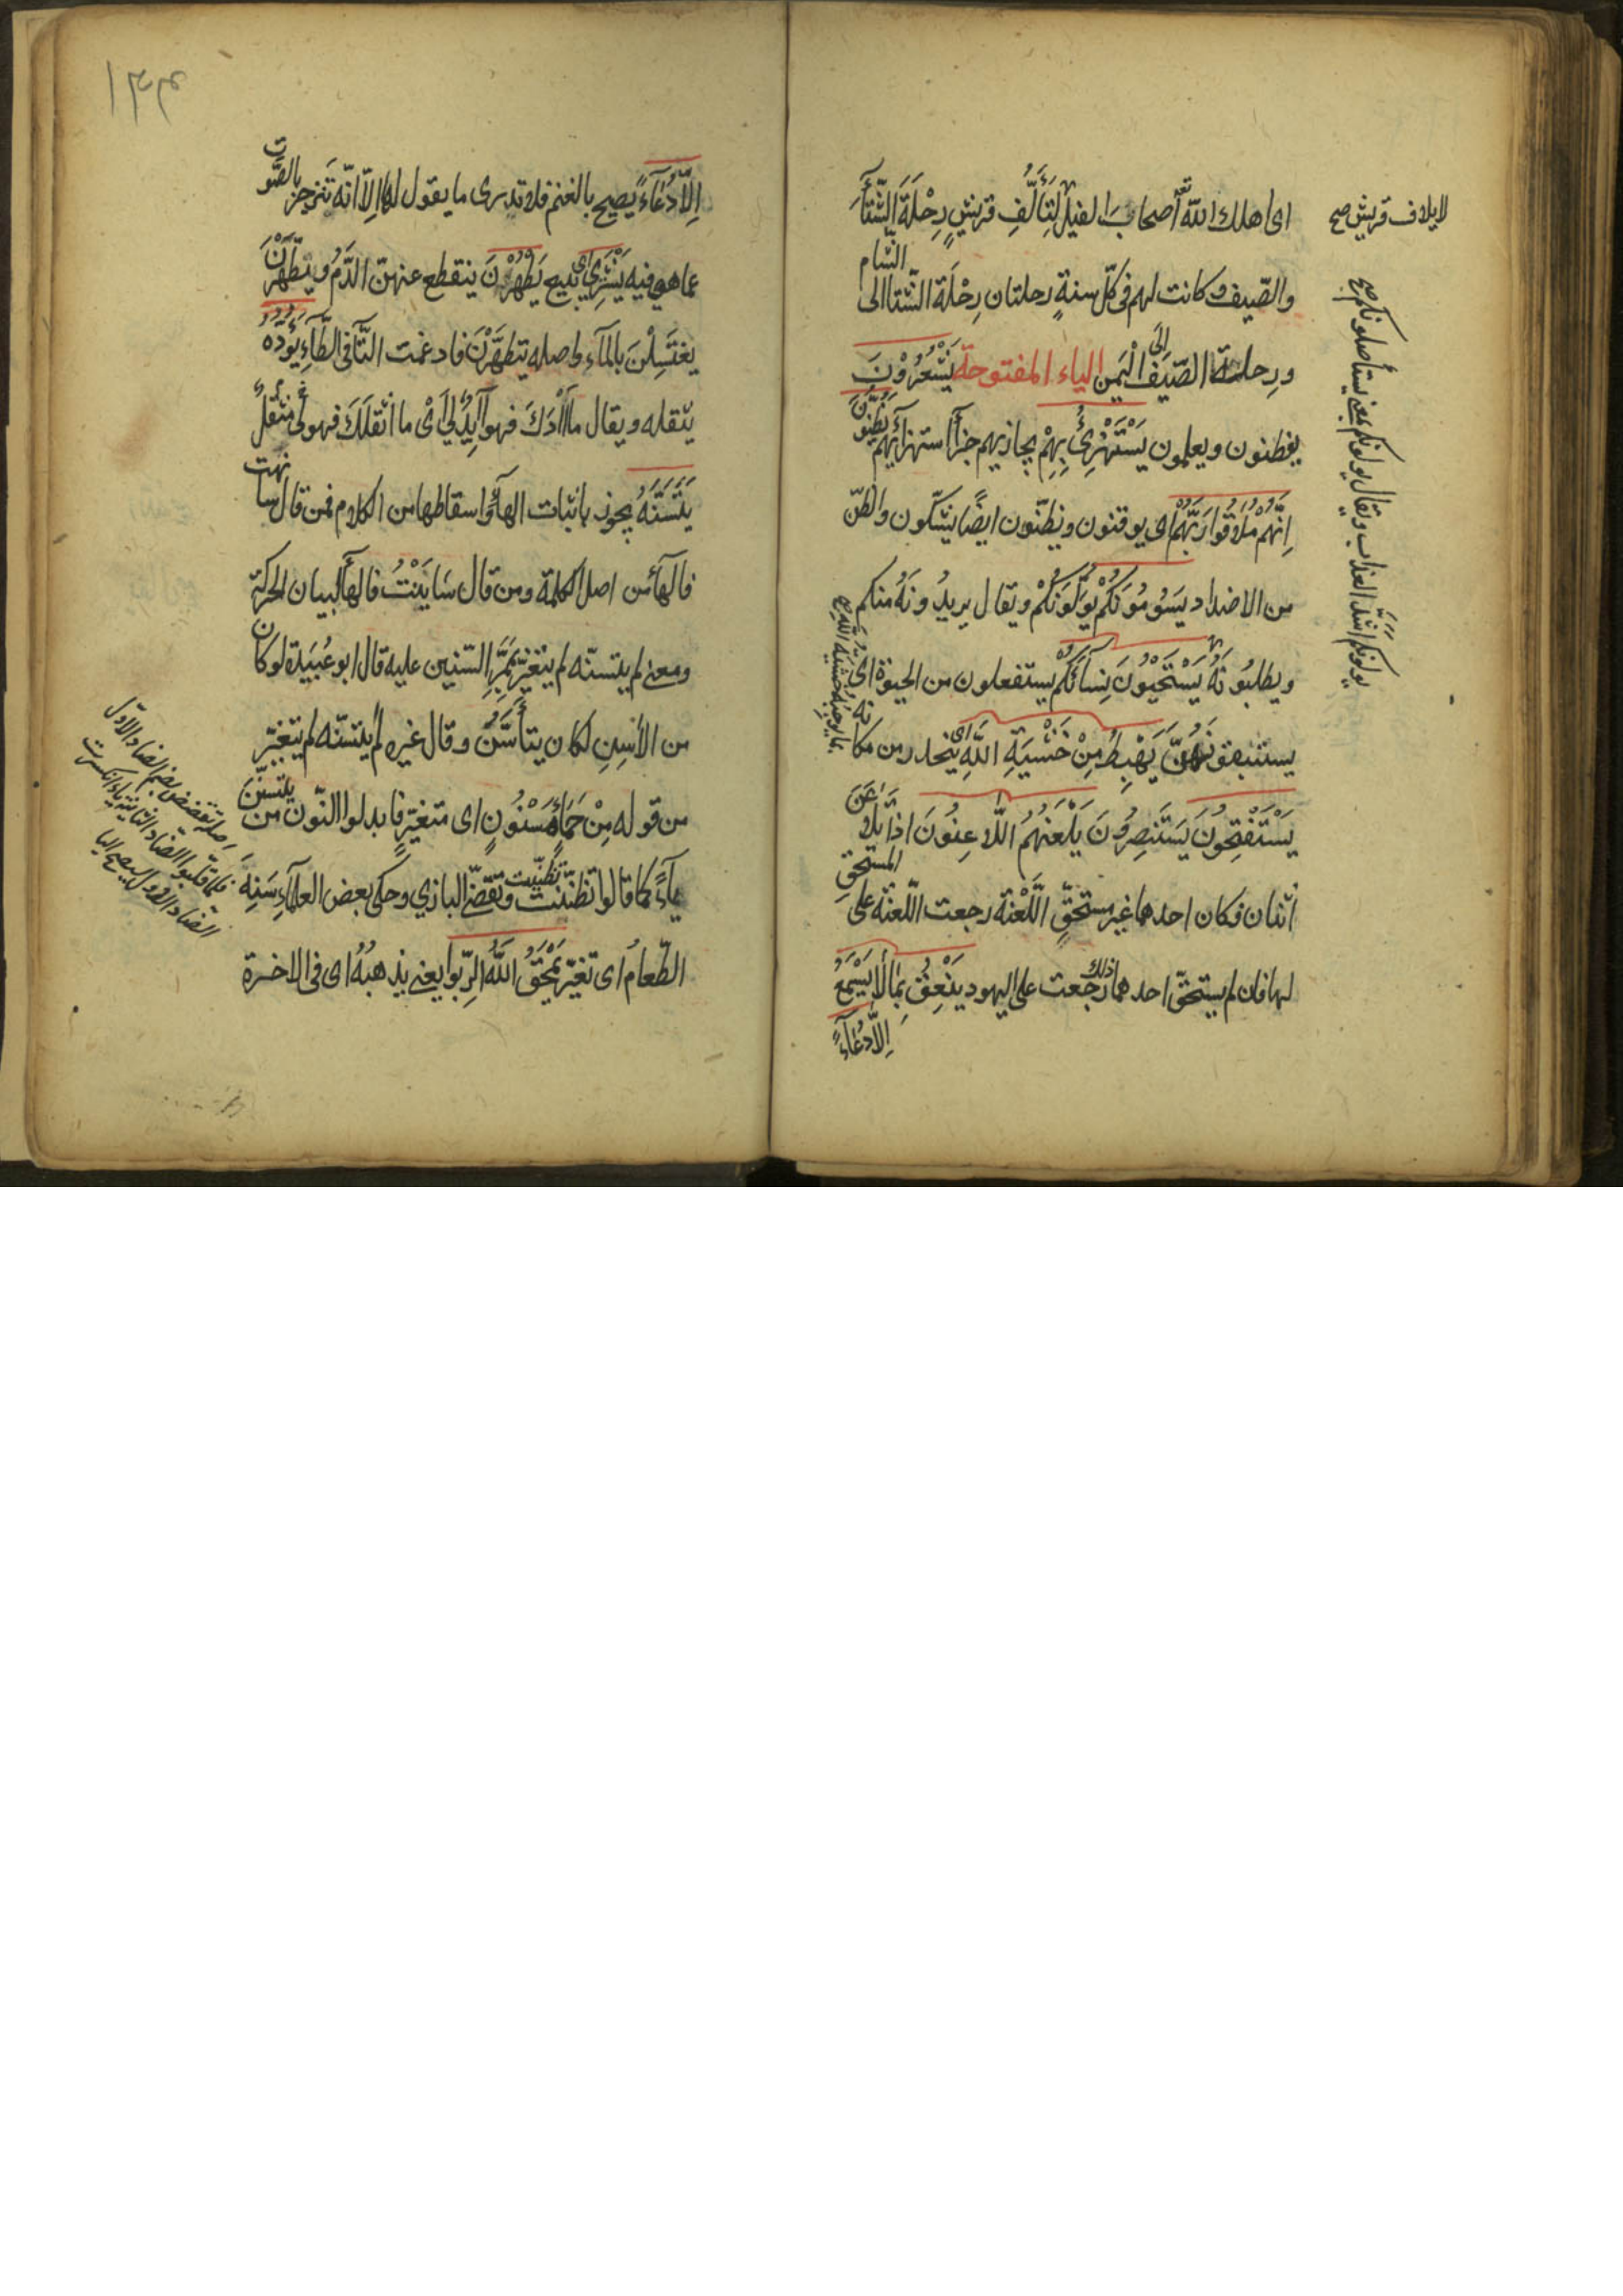 اى اهلك الله تعٰ أصحابَ الفيل لِتَأَلُّفِ قريشٍ رِحْلَةَ الشِّتَآءِ
لايلاف قريش صح
والصّيف وكانت لهم فى كلّ سنةٍ رحلتان رِحْلَة الشّتا الى الشام
ورحلة الصّيف الَى الْيَمن الياء المفتوحة يَشْعُرُوْنَ
يفطنون ويعلمون يَسْتَهْزِئُ بِهِمْ يجازيهم جزآءَ استهزائهم يَظُنُّونَ
اِنَّهُمْ مُلَاقُوا رَبَّهُمْ اى يوقنون ويظنّون ايضًا يشكّون والظنّ
من الاضداد يَسُوْمُوْنَكُمْ يُوَلُّوْنَكُمْ ويقال يريدُونَهُ منكم
ويطلبُونَهُ يَسْتَحْيُوْنَ نِسَآئَكُمْ يستفعلون من الحيوة اى
يستبقونهُنَّ يَهْبِطُ مِنْ خَشْيَةِ اللّٰهِ اى ينحدر من مكانه
يَسْتَفْتِحُوْنَ يَسْتَنصِرُوْنَ يَلْعَنُهُمُ اللَّاعِنُوْنَ اذا تَلَاعَنَ
اثنان فكان احدهما غير مستحقٍّ اللَّعْنة رجعت اللّعنة على المستحقّ
لها فان لم يستحقّ احدهما ذلك رجعت على اليهود يَنْعِقُ بِمَا لَا يَسْمَعُ
اِلَّا دُعَآءً
يولونكم اشدّ العذاب ويقال يولونكم بمعنى يستأصلونكم صح
١٣٣
اِلَّا دُعَآءً يصيح بالغنم فلا تدرى ما يقول لها اِلّا انّه تنزجز بالصَّوت
عما هى فيه يَشْرِيْ اى يبيع يَطْهُرْنَ ينقطع عنهنّ الدَّمُ ويَطَّهَّرْنَ
يغتَسِلْنَ بالمآء واصله يتطهّرْنَ فادغمت التّآ فى الطّآءِ يَؤُدُهُ
يثقله ويقال ما آدَكَ فهو آيِدٌ لى اىْ ما اثقَلَكَ فهو لى مثقلٌ
يَتَسَنَّهْ يجوز باثبات الهآءِ واسقاطها من الكلام فمن قال سانهت
فالهآء من اصل الكلمة ومن قال سَانَيْتُ فالهآءُ لبيان الحركة
ومعنى لم يتسنّه لم يتغيّر بمَرِّ السّنين عليه قال ابو عُبَيَدة لوكان
من الأسِنِ لكان يتأسّن وقال غيره لَمْ يتسنّه لم يتغيّر
من قوله مِنْ حَمَأٍ مَسْنُوْنٍ اى متغيّرٍ فابدلوا النّون من يتسنّن
يآءً كما قالوا تظنّنت تظنّيت وتقضّي البازي وحكى بعض العلمآء سَنِهَ
الطّعامُ اى تغيّر يَمْحَقُ اللّٰهُ الرِّبٰوا يعنى يذهبُهُ اى فى الاخرة
اصله تقضض بضمّ الضاد الاوّل
فلما قلبوا الضاد الثانية ياءً انكسرت
الضاد الاول ليصح اليا